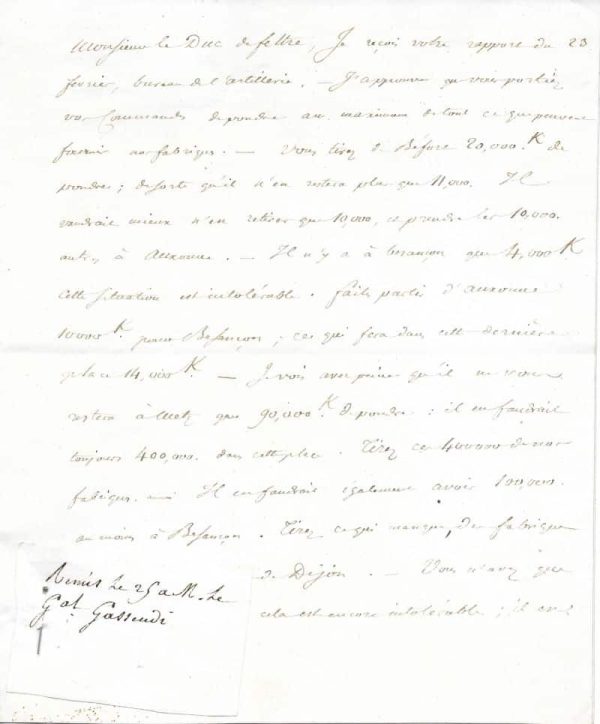 Monsieur le Duc de feltre, Je reçois votre rapport du 23
fevrier, bureau de l'artillerie. — J'approuve que vous portiez
vos Commandes de poudre au maximum de tout ce que peuvent
fournir nos fabriques. — Vous tirez de Béfort 20,000.K de
poudre; de sorte qu'il n'en restera plus que 11,000. Il
vaudrait mieux n'en retirer que 10,000, et prendre les 10,000.
autres à Auxonne. — Il n'y a à besançon que 4,000 K
Cette situation est intolérable. faites partir d'auxonne
10000 K. pour Besançon; ce qui fera dans cette dernière
place 14,000 K. — Je vois avec peine qu'il ne vous
restera à Metz que 90,000.K de poudre: il en faudrait
toujours 400,000. dans cette place. Tirez ces 400000 de nos
fabriques. — Il en faudrait également avoir 100,000.
au moins à Besançon. Tirez ce qui manque, des fabriques
de Dijon. — Vous n'avez que
cela est encore intolérable; il en
Remis le 25 a M. le
Gal Gassendi